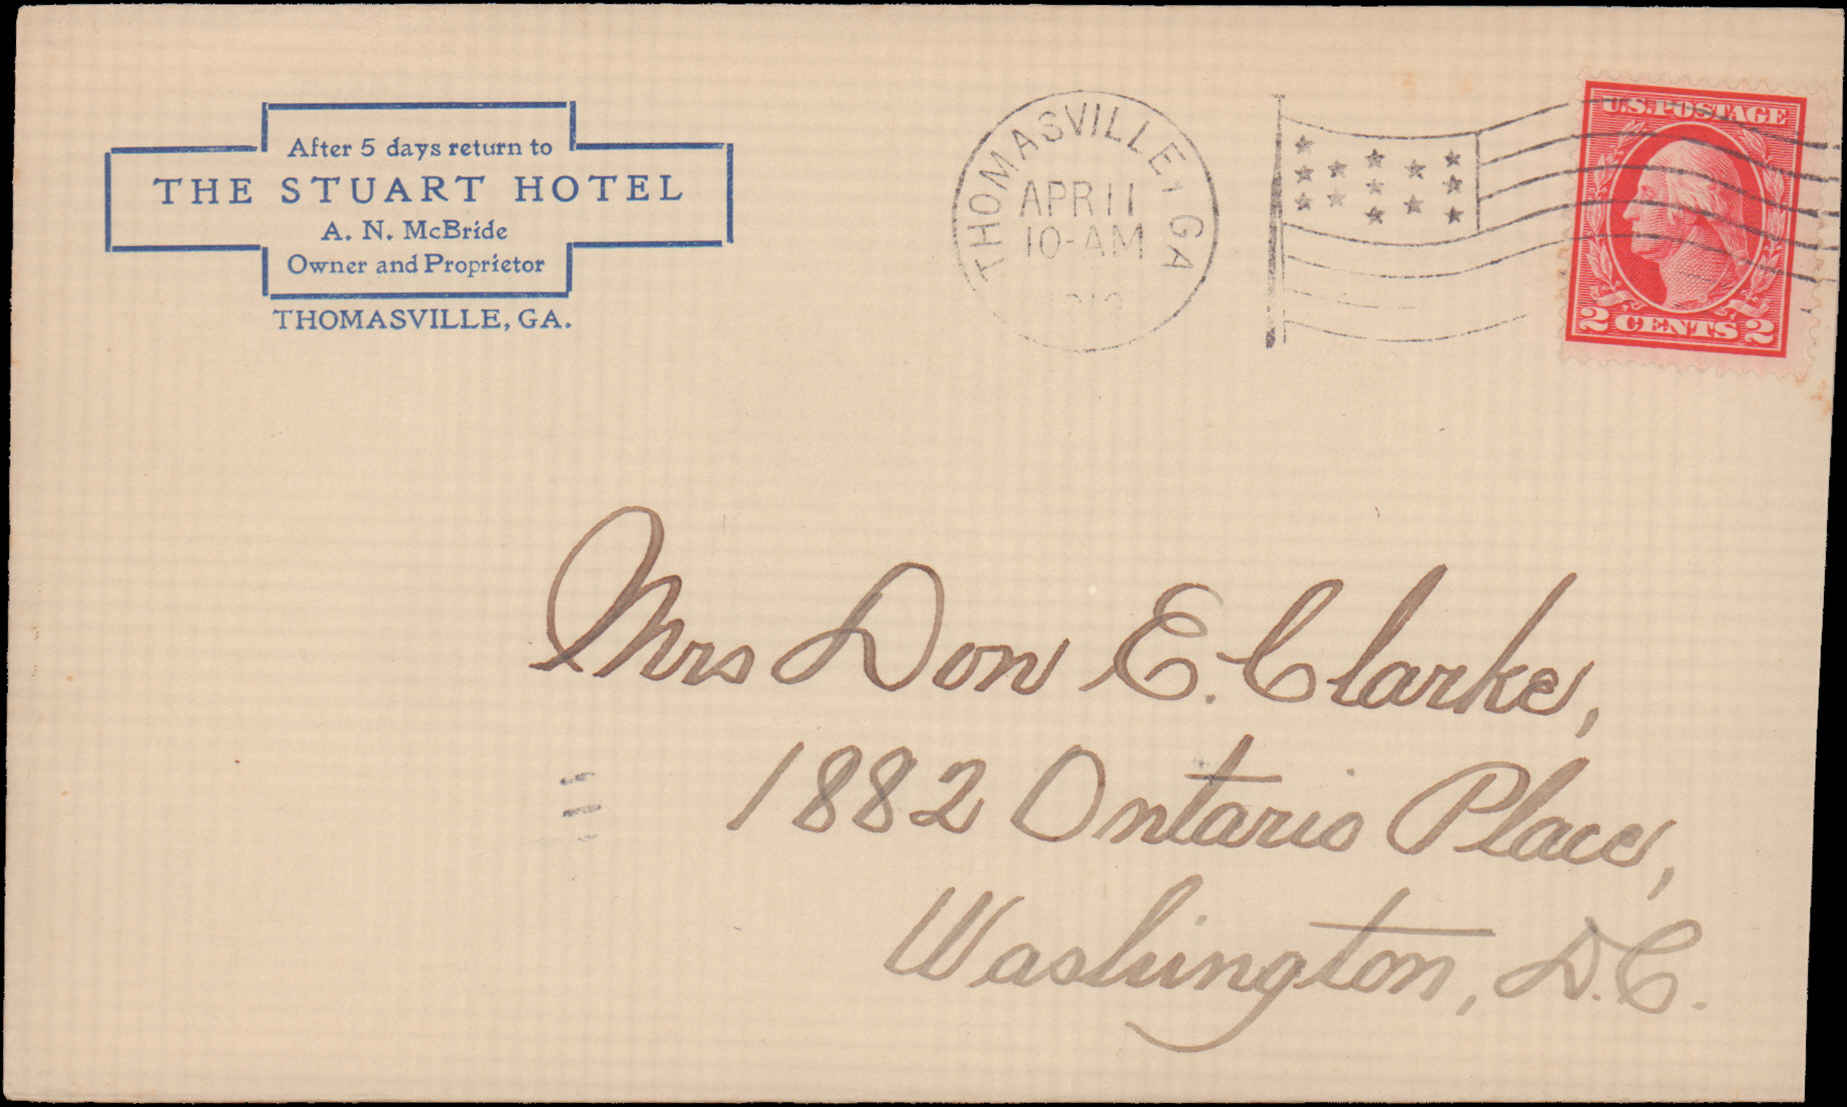 After 5 days return to
THE STUART HOTEL
A. N. McBride
Owner and Proprietor
THOMASVILLE, GA.
THOMASVILLE, GA
APR 11
10-AM
U.S. POSTAGE
2 CENTS 2
Mrs Don E. Clarke,
1882 Ontario Place,
Washington, D.C.